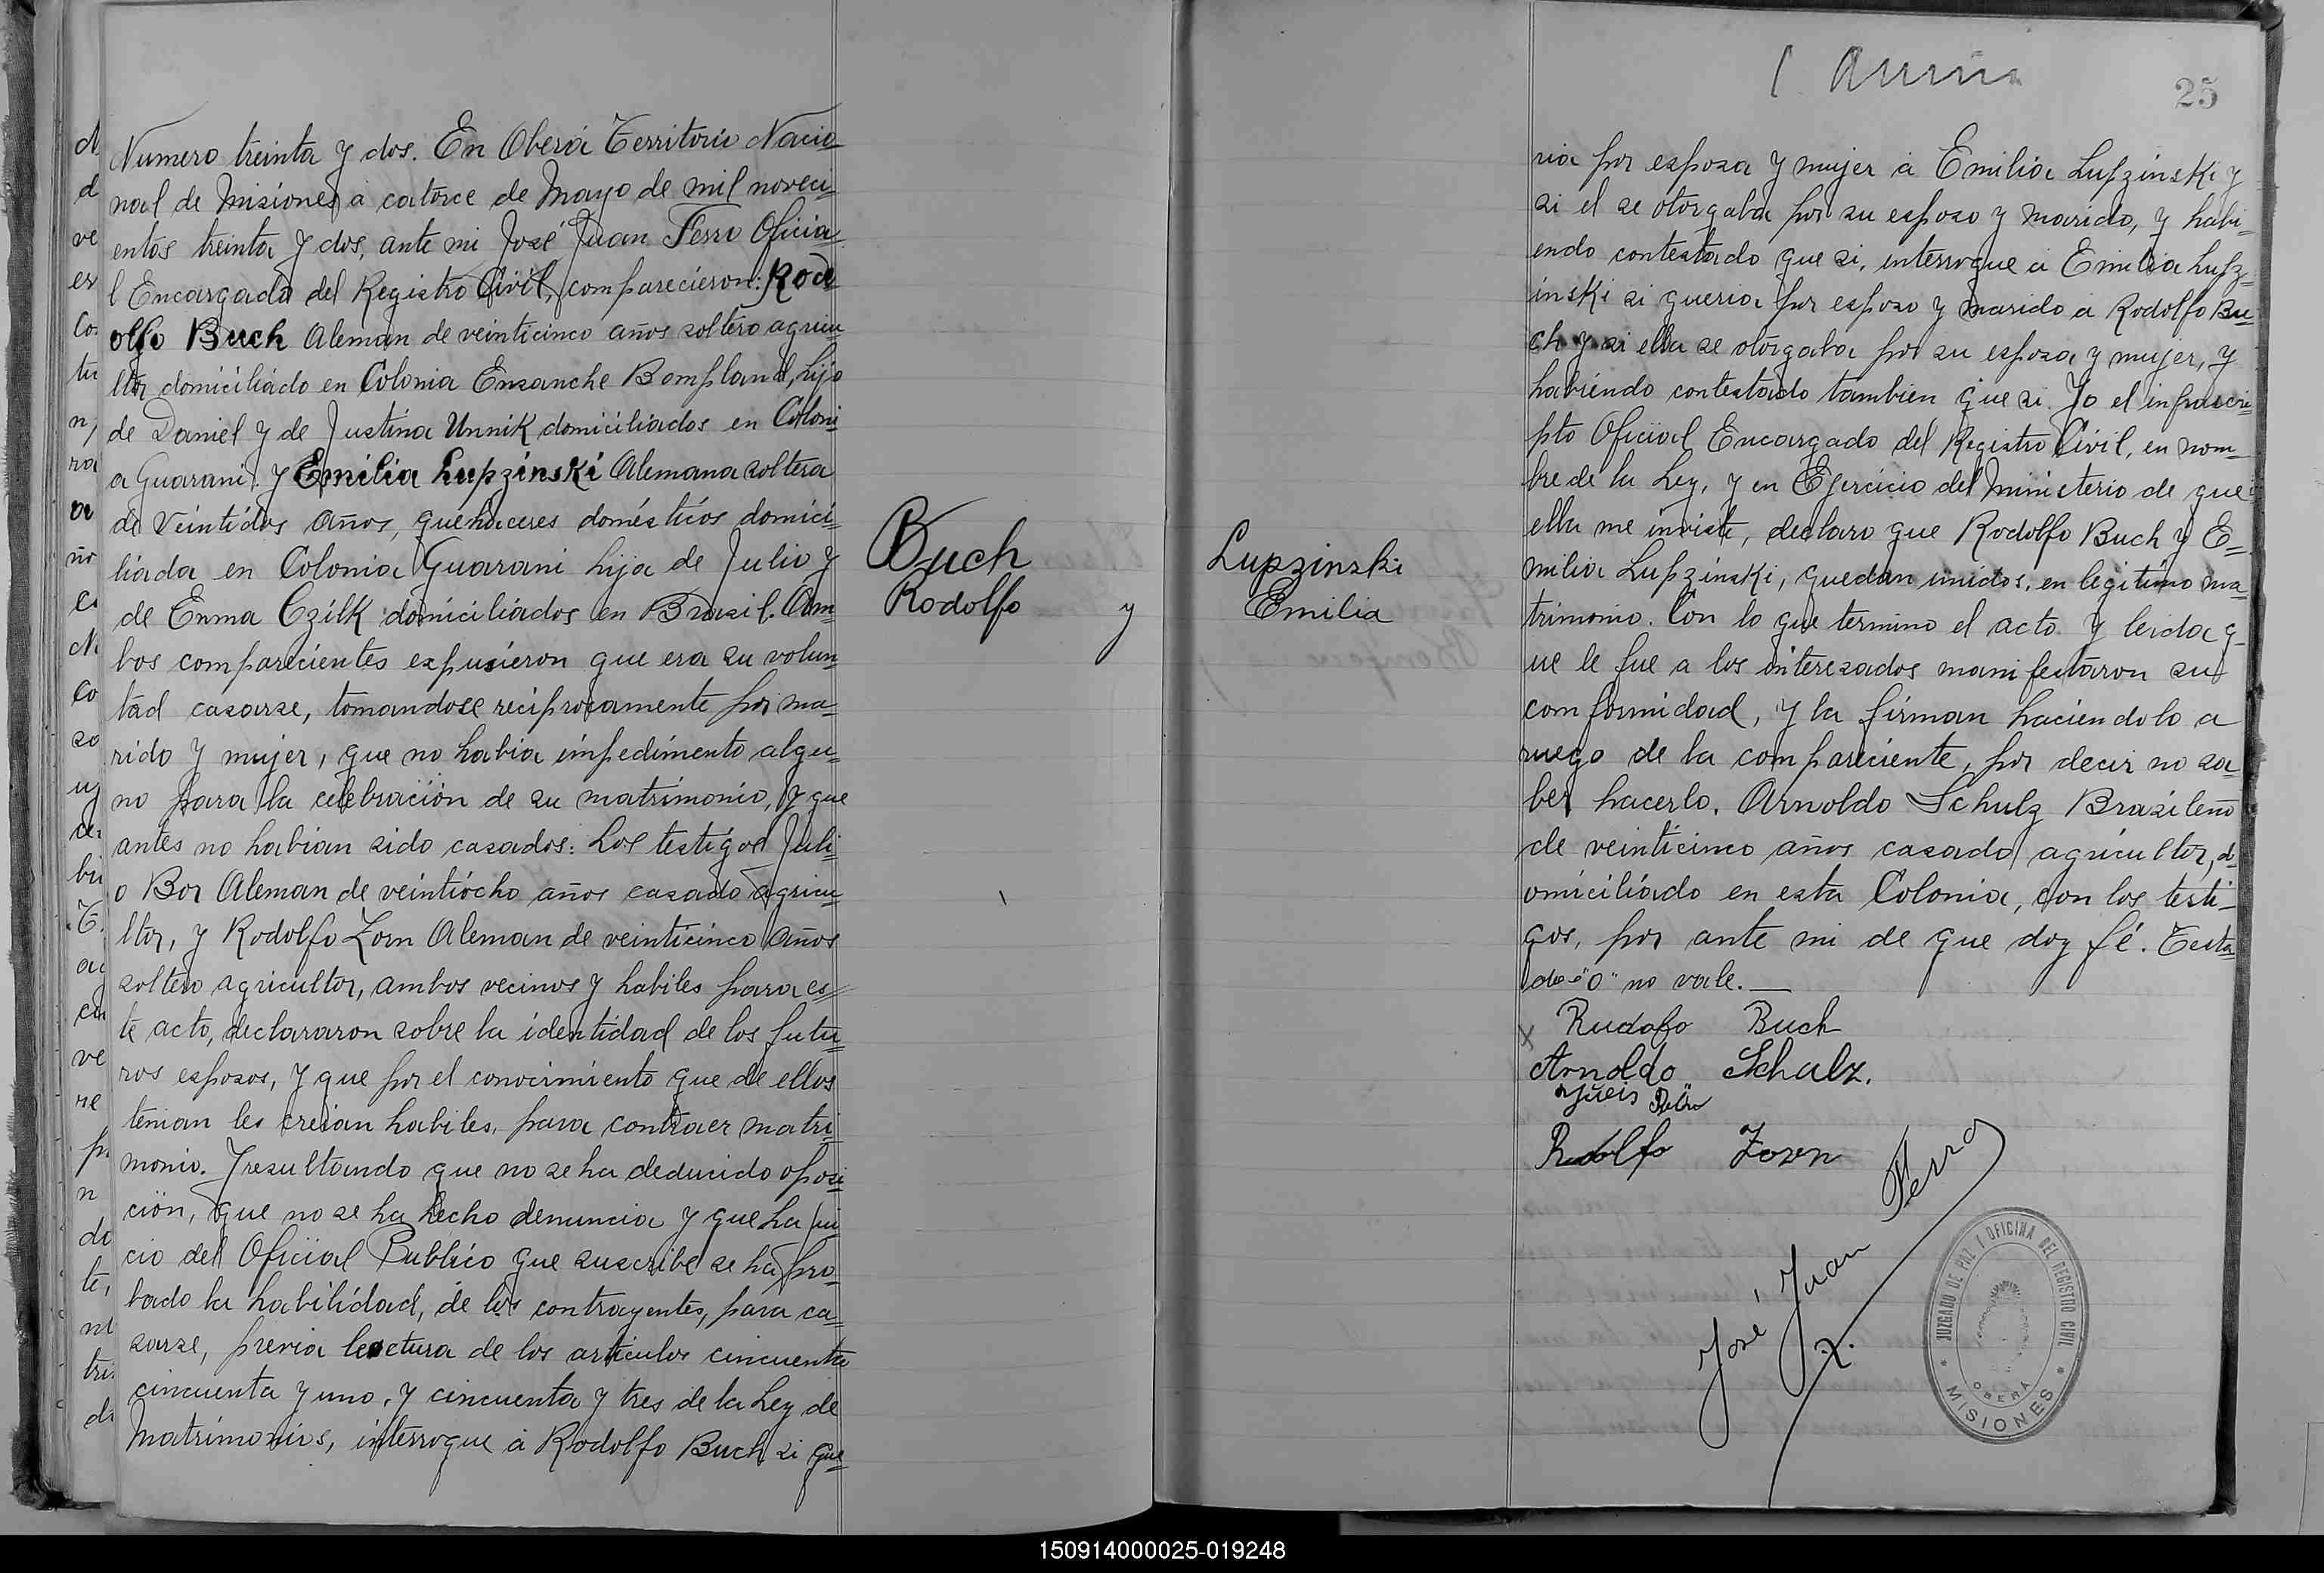 Numero treinta y dos. En Oberá Territorio Nacio=
nal de Misiones á catorce de Mayo de mil noveci=
entos treinta y dos, ante mi José Juan Ferro Oficia=
l Encargado del Registro Civil, comparecieron: Rod=
olfo Buch Aleman de veinticinco años soltero agricu=
ltor domiciliado en Colonia Ensanche Bompland, hijo
de Daniel y de Justina Unnik domiciliados en Coloni=
a Guarani. y Emilia Lupzinski Alemana soltera
de Veintidos años, quehaceres domésticos domici=
liada en Colonia Guarani hija de Julio y
de Emma Czilk domiciliados en Brasil. Am=
bos comparecientes expusieron que era su volun=
tad casarse, tomandose reciprocamente por ma=
rido y mujer, que no habia impedimento algu=
no para la celebración de su matrimonio, y que
antes no habian sido casados: Los testigos Juli=
o Bor Aleman de veintiócho años casado agricu=
ltor, y Rodolfo Zorn Aleman de veinticinco años
soltero agricultor, ambos vecinos y habiles para es=
te acto, declararon sobre la identidad de los futu=
ros esposos, y que por el conocimiento que de ellos
tenian les creian habiles, para contraer matri=
monio. Y resultando que no se ha deducido oposi=
ción, que no se ha hecho denuncia y que ha jui=
cio del Oficial Publico que suscribe se ha pro=
bado la habilidad, de los contrayentes, para ca=
sarse, previa lectura de los articulos cincuenta
cincuenta y uno, y cincuenta y tres de la Ley de
Matrimonios, interrogue á Rodolfo Buch si que=
Buch
Rodolfo y
Lupzinski
Emilia
25
ria por esposa y mujer á Emilia Lupzinski y
si el se otorgaba por su esposo y marido, y habi=
endo contestado que si, interrogue á Emilia Lupz=
inski si queria por esposo y marido á Rodolfo Bu=
ch y si ella se otorgaba por su esposa y mujer, y
habiendo contestado tambien que si. Yo el infrascri=
pto Oficial Encargado del Registro Civil, en nom=
bre de la Ley, y en Ejercicio del Ministerio de que
ella me inviste, declaro que Rodolfo Buch y E=
milia Lupzinski, quedan unidos, en legitimo ma=
trimonio. Con lo que termino el acto. Y leida q=
ue le fue a los interesados manifestaron su
conformidad, y la firman haciendolo a
ruego de la compareciente, por decir no sa=
ber hacerlo. Arnoldo Schulz Brasileño
de veinticinco años casado agricultor, d=
omiciliado en esta Colonia, con los testi=
gos, por ante mi de que doy fé. Testa=
do "o" no vale.—
x Rudofo Buch
Arnoldo Schulz.
Rodolfo Zoren
José Juan Ferro
JUZGADO DE PAZ Y OFICINA DEL REGISTRO CIVIL
OBERÁ
* MISIONES *
150914000025-019248